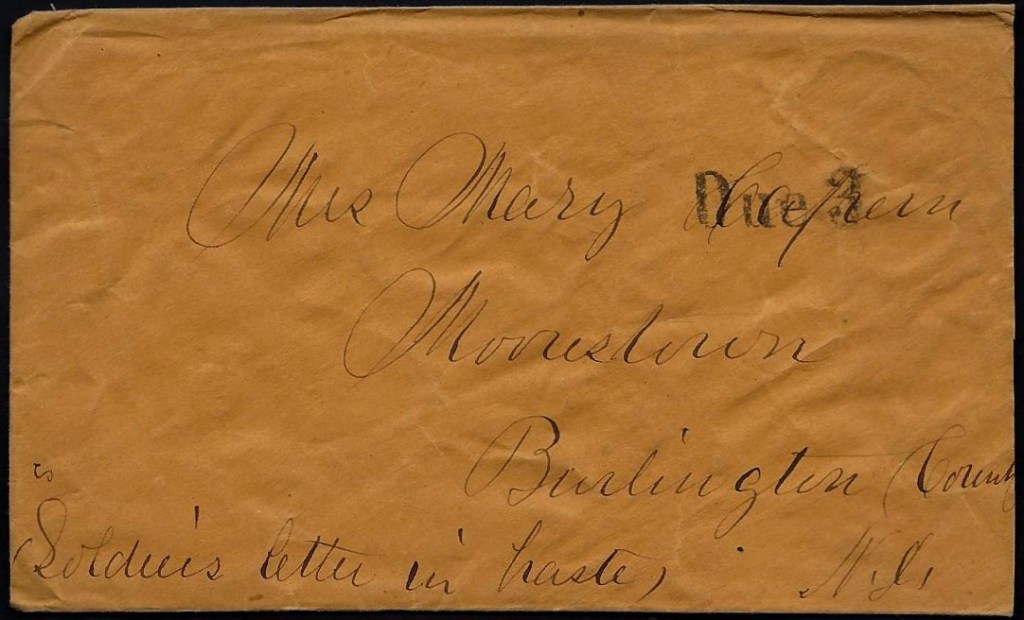 Mrs Mary
Due 3
Moorestown
Burlington County
Soldier's letter in haste, N.J.